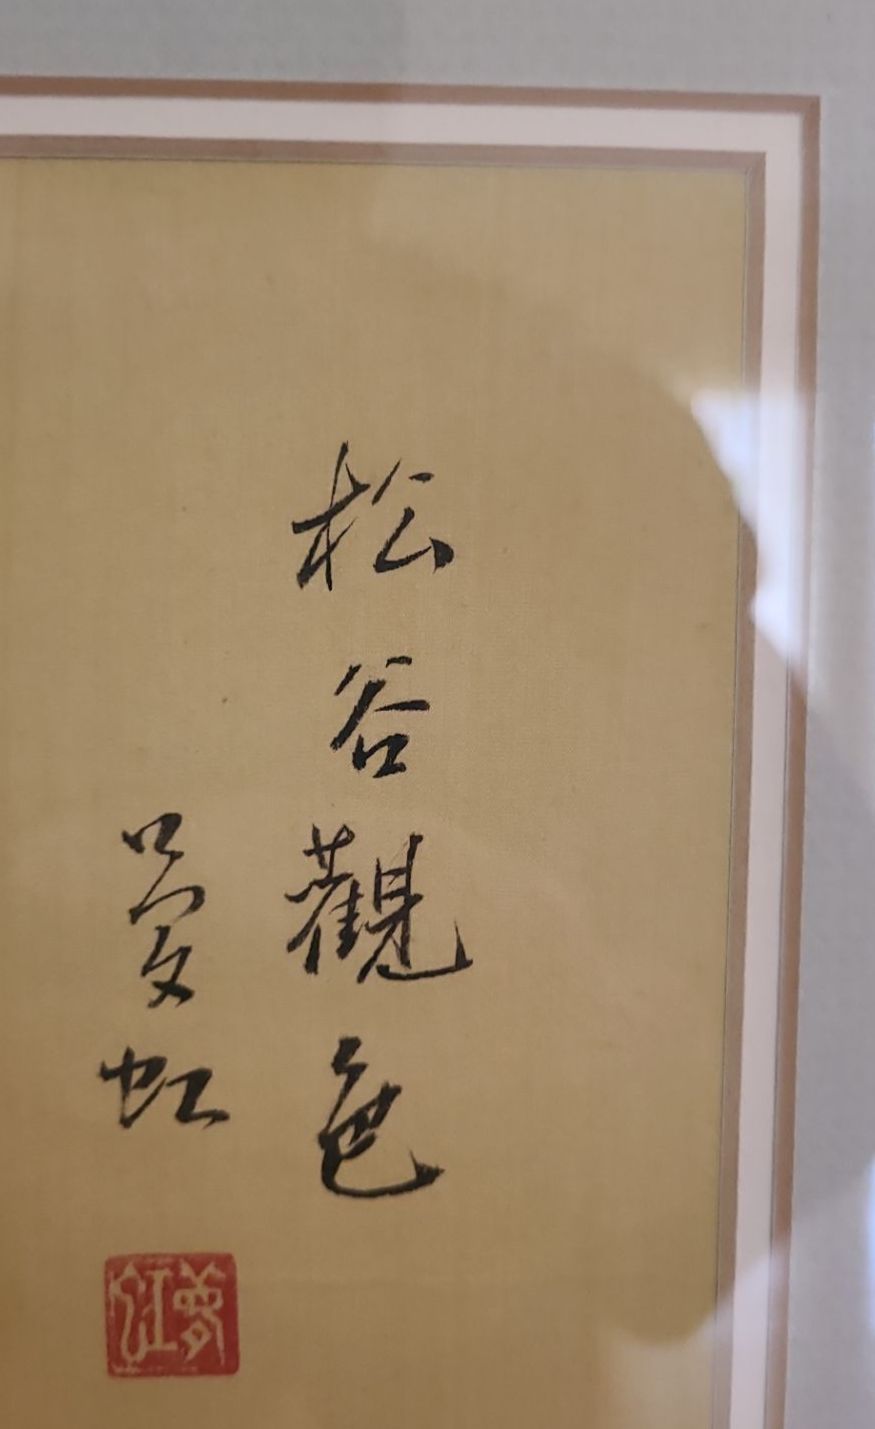 松谷觀色
曼虹